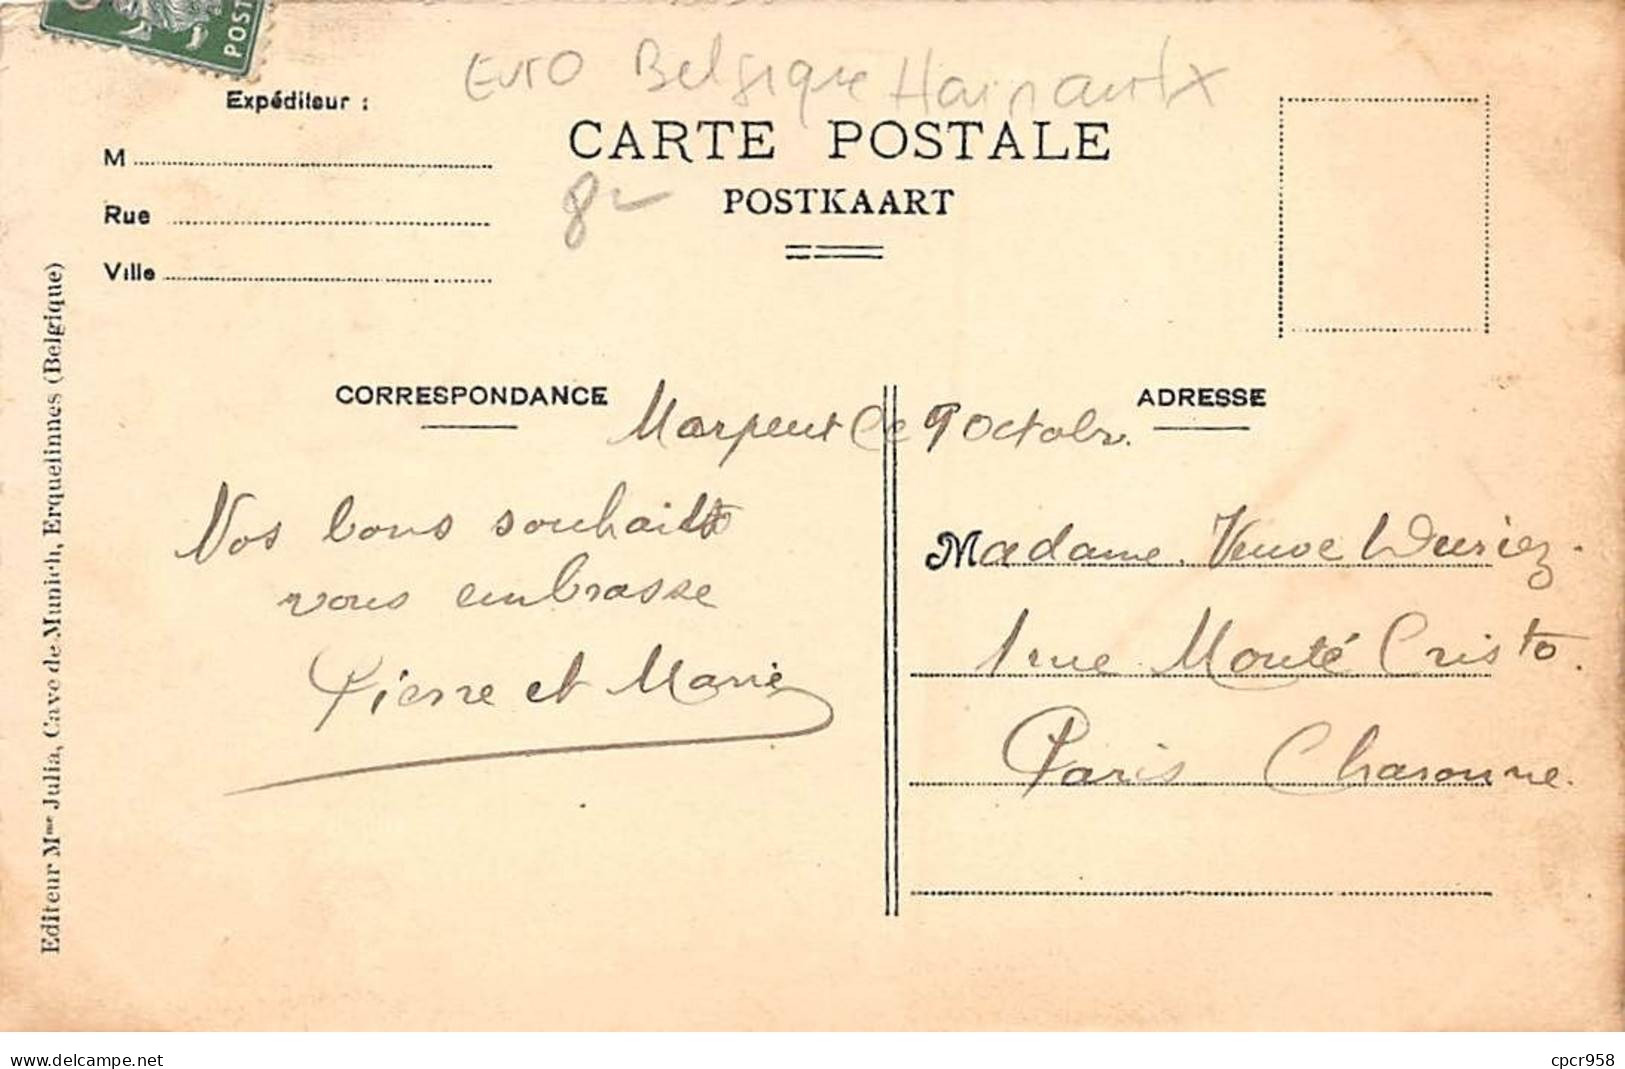 POST
Euro Belgique Hainaut
Expéditeur :
CARTE POSTALE
M
8
POSTKAART
Rue
Ville
Editeur Mme Julia, Cave de Munich, Erquelinnes (Belgique)
CORRESPONDANCE
ADRESSE
Marpent Ce 9 Octobr.
Nos bons souhaits
vous embrasse
Pierre et Marie
Madame Veuve Wuriez.
1 rue Monté Cristo.
Paris Charonne.
www.delcampe.net
cpcr958